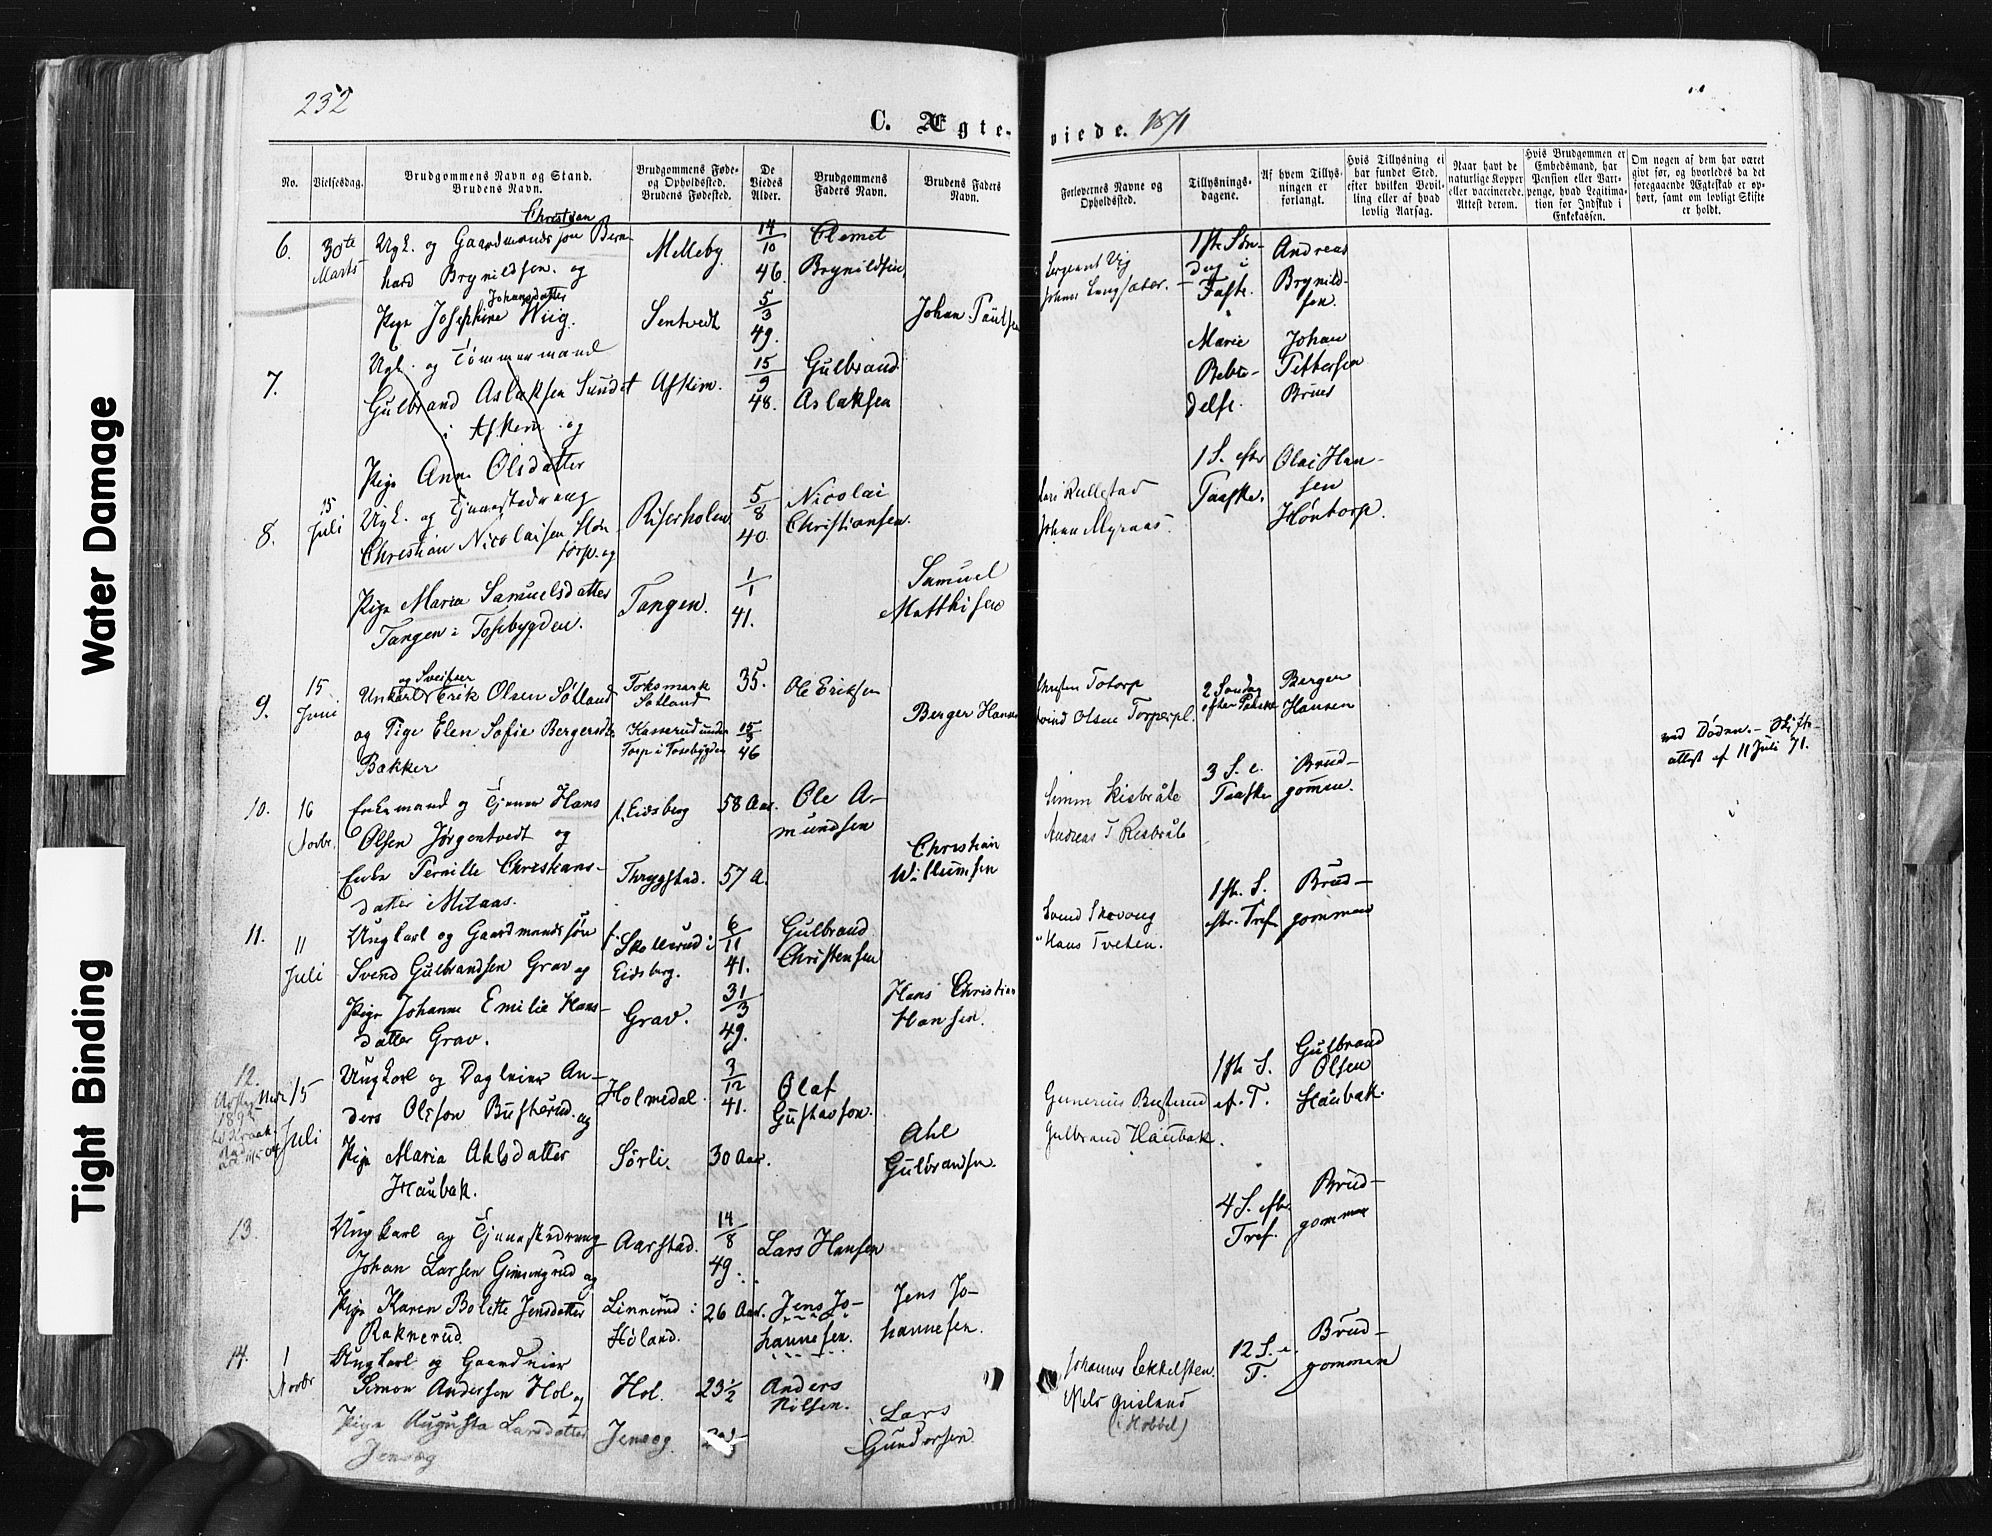 232
C. Ægte-
viede. 1871
No.
Vielsesdag.
Brudgommens Navn og Stand.
Brudens Navn.
Brudgommens Føde-
og Opholdssted.
Brudens Fødested.
De
Viedes
Alder.
Brudgommens
Faders Navn.
Brudens Faders
Navn.
Forlovernes Navne og
Opholdssted.
Tillysnings-
dagene.
Af hvem Tillys-
ningen er
forlangt.
Hvis Tillysning ei
har fundet Sted,
efter hvilken Bevil-
ling eller af hvad
lovlig Aarsag.
Naar havt de
naturlige Kopper
eller vaccinerede.
Attest derom.
Hvis Brudgommen er
Embedsmand, har
Pension eller Vart-
penge, hvad Legitima-
tion for Indskud i
Enkekassen.
Om nogen af dem har været
givt før, og hvorledes da det
foregaaende Ægteskab er op-
hørt, samt om lovligt Skifte
er holdt.
6.
30te
Marts
Christian
Ugk. og Gaardmandssøn Bern-
hard Brynildsen. og
Johansdatter
Pige Josephine Wiig.
Melleby
Sentvedt
14/10
46.
5/3
49.
Clemet
Brynildsen
Johan Paulsen
Sergeant Vig
Johan Langsæter.
1ste Søn-
dag i
Faste.
Andreas
Brynild-
sen.
7.
Ugk. og Tømmermand
Gulbrand Aslaksen Sundet
i Askim og
Pige Anne Olsdatter
Askim.
15/9
48.
Gulbrand
Aslaksen
Marie
Bebu-
delse.
Johan
Pettersen
Bruns
8.
15
Juli
Ugk. og Tjenestedreng
Christian Nicolaisen Høn-
torp. og
Pige Maria Samuelsdatter
Tangen i Tosebygden.
Riserholen
Tangen.
5/8
40.
1/1
41.
Nicolai
Christiansen.
Samuel
Matthisen
Lars Kullestad
Johan Myraas.
1 S. efter
Paaske.
Olai Han-
sen
Høntorp.
9.
15
Juni
og Sveitser
Unkarl Erik Olsen Sølland
og Pige Elen Sofie Bergersdt.
Bakker
Toksmark
Sølland
Kasserud under
Torp i Tosebygden
35.
15/3
46
Ole Eriksen
Berger Hansen
Christen Totorp
Svend Olsen Torperpl.
2 Søndag
efter Paaske
Berger
Hansen
10.
16
Novbr.
Enkemand og Tjener Hans
Olsen Jørgentvedt og
Enke Pernille Christians-
datter Mitaas.
f. Eidsberg
Thrygstad.
58 Aar.
57 A.
Ole A-
mundsen
Christian
Willumsen
Simen Risbråte
Andreas T. Risbråte
3 S. e.
Paaske
Brud-
gommen.
ved Døden. – Skifte-
attest af 11 Juli 71.
11.
11
Juli
Ungkarl og Gaardmandssøn
Svend Gulbrandsen Grav og
Pige Johanne Emilie Hans-
datter Grav.
f. Skollerud i
Eidsberg.
Grav.
6/11
41.
31/3
49.
Gulbrand
Christensen
Hans Christian
Hansen.
Svend Skovong
Hans Tveten.
1ste S.
eftr. Tref.
Brud-
gommen
12.
15
Juli
Ungkarl og Dagleier An-
ders Olsson Busterud. og
Pige Maria Ahlsdatter
Haubak.
Holmedal.
Sørli.
3/12
41.
30 Aar.
Olaf
Gustavson.
Ahl
Gulbrandsen.
Gunerius Busterud
Gulbrand Haubak.
1ste S.
ef. T.
Gulbrand
Olsen
Haubak.
13.
Ungkarl og Tjenestedreng
Johan Larsen Gimingrud og
Pige Karen Bolette Jensdatter
Raknerud.
Aarstad.
Linnerud i
Høland.
14/8
49.
26 Aar.
Lars Hansen
Jens Jo-
hannesen.
Jens Jo-
hannesen.
4 S. efter
Tref.
Brud-
gommen
14.
1
Novbr
Ungkarl og Gaardeier
Simon Andersen Hol og
Pige Augusta Larsdatter
Jensæg
Hol.
Jensæg.
23½
Anders
Nilsen.
Lars
Gundersen.
Johannes Lekkelsten.
Niels Grisland
(i Hobbel)
12 S. e.
T.
Brud-
gommen
Water Damage
Tight Binding